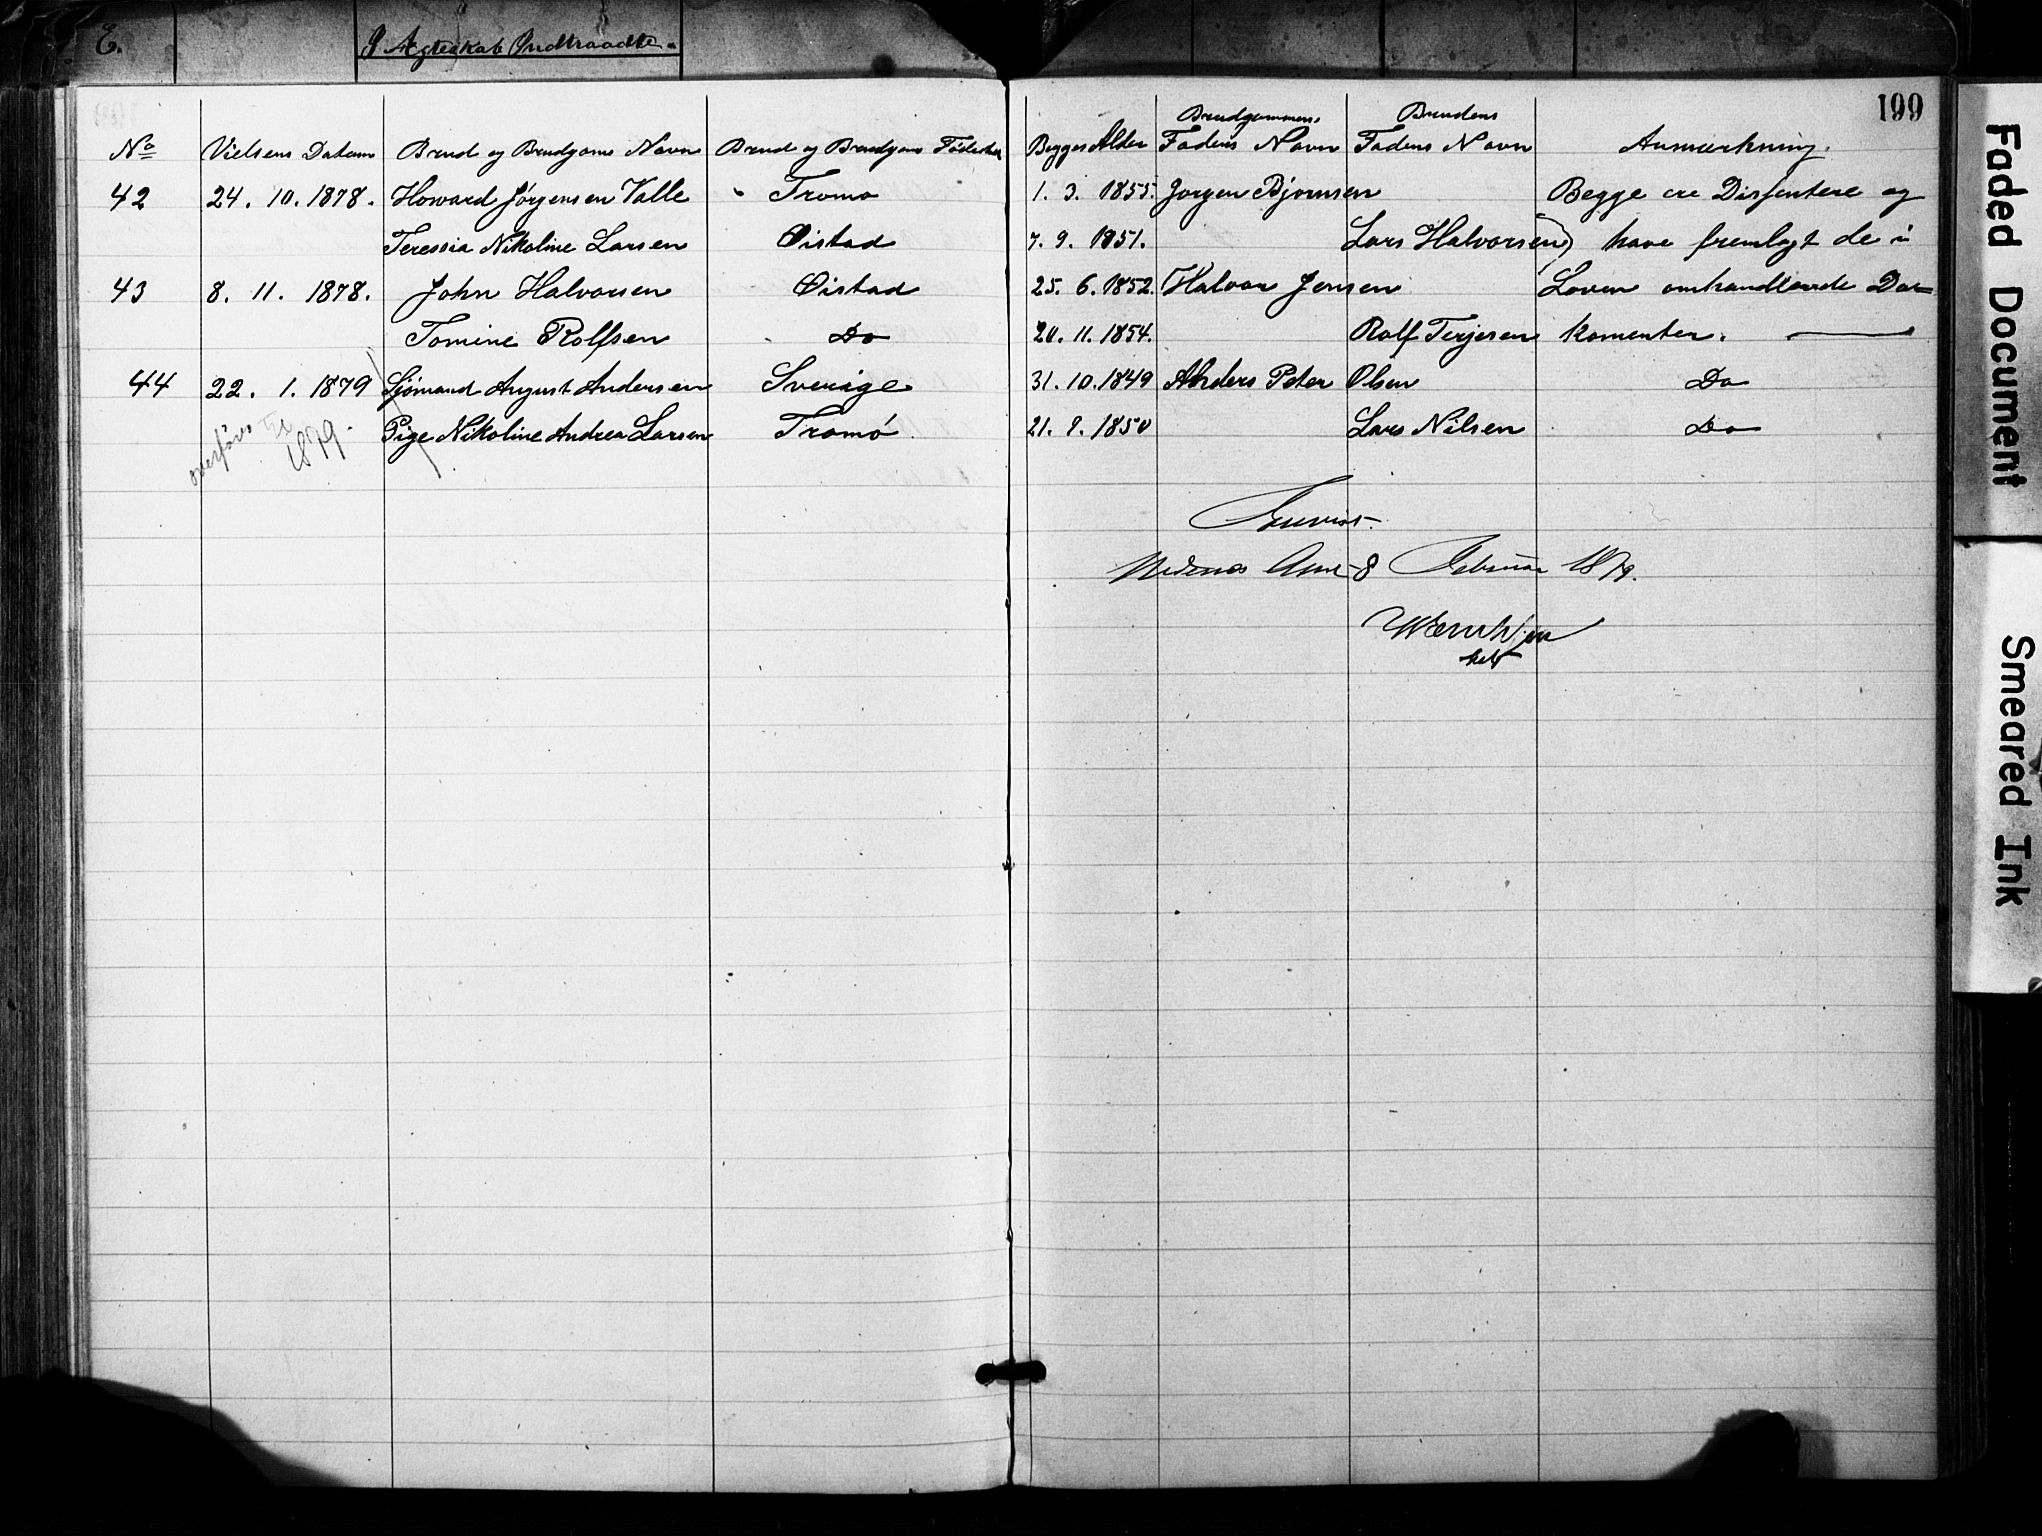 E. I Ægteskab Indtraadte.
199
Brudgommens Brudens
No Vielsens Datum Brud og Brudgoms Navn Brud og Brudgoms Fødested Begges Alder Faders Navn Faders Navn Anmærkning.
42 24. 10. 1878. Howard Jörgensen Valle Tromø 1. 3. 1855. Jorgen Bjornsen Begge ere Dissentere og
Teressia Nikoline Larsen Øistad 7. 9. 1851. Lars Halvorsen) have fremlagt de i
43 8. 11. 1878. John Halvorsen Øistad 25. 6. 1852. Halvor Jensen Loven omhandlende Do=
Tomine Rolfsen Do 20. 11. 1854. Rolf Terjesen komenter.
44 22. 1. 1879 Sjömand August Andersen Sverige 31. 10. 1849 Anders Peter Olsen Do
Pige Nikoline Andrea Larsen Tromö 21. 8. 1850 Lars Nilsen Do
overføres til
1879.
Nedenes Amt 8 Februar 1879.
Faded Document
Smeared Ink